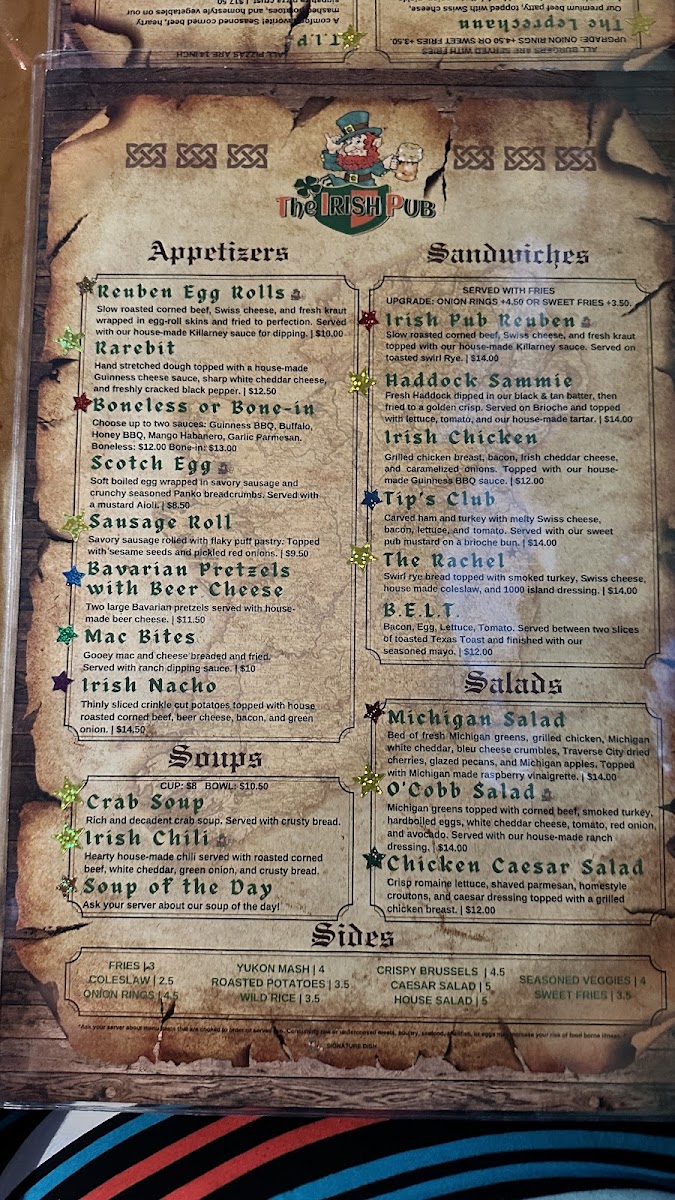 ALL PIZZAS ARE 14 INCH
T.I.P
A comforting favorite! Seasoned corned beef, hearty
mashed potatoes, and homestyle vegetables on our
ALL BURGERS ARE SERVED WITH FRIES
UPGRADE: ONION RINGS +4.50 OR SWEET FRIES +3.50.
The Leprechaun
Our premium beef patty, topped with Swiss cheese,
The IRISH PUB
Appetizers
Reuben Egg Rolls
Slow roasted corned beef, Swiss cheese, and fresh kraut
wrapped in egg-roll skins and fried to perfection. Served
with our house-made Killarney sauce for dipping. | $10.00
Rarebit
Hand stretched dough topped with a house-made
Guinness cheese sauce, sharp white cheddar cheese,
and freshly cracked black pepper. | $12.50
Boneless or Bone-in
Choose up to two sauces: Guinness BBQ, Buffalo,
Honey BBQ, Mango Habanero, Garlic Parmesan.
Boneless: $12.00 Bone-in: $13.00
Scotch Egg
Soft boiled egg wrapped in savory sausage and
crunchy seasoned Panko breadcrumbs. Served with
a mustard Aioli. | $8.50
Sausage Roll
Savory sausage rolled with flaky puff pastry. Topped
with sesame seeds and pickled red onions. | $9.50
Bavarian Pretzels
with Beer Cheese
Two large Bavarian pretzels served with house-
made beer cheese. | $11.50
Mac Bites
Gooey mac and cheese breaded and fried.
Served with ranch dipping sauce. | $10
Irish Nacho
Thinly sliced crinkle cut potatoes topped with house
roasted corned beef, beer cheese, bacon, and green
onion. | $14.50
Soups
CUP: $8 BOWL: $10.50
Crab Soup
Rich and decadent crab soup. Served with crusty bread.
Irish Chili
Hearty house-made chili served with roasted corned
beef, white cheddar, green onion, and crusty bread.
Soup of the Day
Ask your server about our soup of the day!
Sandwiches
SERVED WITH FRIES
UPGRADE: ONION RINGS +4.50 OR SWEET FRIES +3.50.
Irish Pub Reuben
Slow roasted corned beef, Swiss cheese, and fresh kraut
topped with our house-made Killarney sauce. Served on
toasted swirl Rye. | $14.00
Haddock Sammie
Fresh Haddock dipped in our black & tan batter, then
fried to a golden crisp. Served on Brioche and topped
with lettuce, tomato, and our house-made tartar. | $14.00
Irish Chicken
Grilled chicken breast, bacon, Irish cheddar cheese,
and caramelized onions. Topped with our house-
made Guinness BBQ sauce. | $12.00
Tip's Club
Carved ham and turkey with melty Swiss cheese,
bacon, lettuce, and tomato. Served with our sweet
pub mustard on a brioche bun. | $14.00
The Rachel
Swirl rye bread topped with smoked turkey, Swiss cheese,
house made coleslaw, and 1000 island dressing. | $14.00
B.E.L.T.
Bacon, Egg, Lettuce, Tomato. Served between two slices
of toasted Texas Toast and finished with our
seasoned mayo. | $12.00
Salads
Michigan Salad
Bed of fresh Michigan greens, grilled chicken, Michigan
white cheddar, bleu cheese crumbles, Traverse City dried
cherries, glazed pecans, and Michigan apples. Topped
with Michigan made raspberry vinaigrette. | $14.00
O'Cobb Salad
Michigan greens topped with corned beef, smoked turkey,
hardboiled eggs, white cheddar cheese, tomato, red onion,
and avocado. Served with our house-made ranch
dressing. | $14.00
Chicken Caesar Salad
Crisp romaine lettuce, shaved parmesan, homestyle
croutons, and caesar dressing topped with a grilled
chicken breast. | $12.00
Sides
FRIES | 3
COLESLAW | 2.5
ONION RINGS | 4.5
YUKON MASH | 4
ROASTED POTATOES | 3.5
WILD RICE | 3.5
CRISPY BRUSSELS | 4.5
CAESAR SALAD | 5
HOUSE SALAD | 5
SEASONED VEGGIES | 4
SWEET FRIES | 3.5
*Ask your server about menu items that are cooked to order or served raw. Consuming raw or undercooked meats, poultry, seafood, shellfish, or eggs may increase your risk of food borne illness.
SIGNATURE DISH